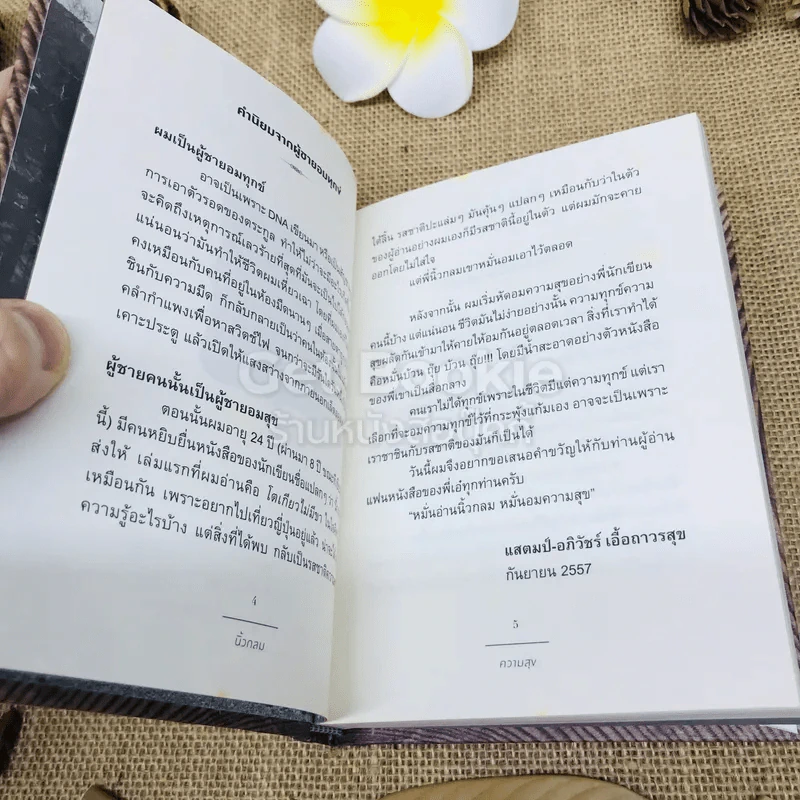 คำนิยมจากผู้ชายอมทุกข์
ผมเป็นผู้ชายอมทุกข์
อาจเป็นเพราะ DNA เขียนมา
การเอาตัวรอดของตระกูล ทำให้ไม่ว่าจะ
จะคิดถึงเหตุการณ์เลวร้ายที่สุดที่มันจะ
แน่นอนว่ามันทำให้ชีวิตผมเหี่ยวเฉา
คงเหมือนกับคนที่อยู่ในห้องมืดนานๆ
ชินกับความมืด ก็กลับกลายเป็นว่าคนใน
คลำกำแพงเพื่อหาสวิตช์ไฟ จนกว่าจะมี
เคาะประตู แล้วเปิดให้แสงสว่างจากภายนอก
ผู้ชายคนนั้นเป็นผู้ชายอมสุข
ตอนนั้นผมอายุ 24 ปี (ผ่านมา 8 ปี
นี้) มีคนหยิบยื่นหนังสือของนักเขียนชื่อแปลกๆ ว่า
ส่งให้ เล่มแรกที่ผมอ่านคือ โตเกียวไม่มีขา
เหมือนกัน เพราะอยากไปเที่ยวญี่ปุ่นอยู่แล้ว
ความรู้อะไรบ้าง แต่สิ่งที่ได้พบ กลับเป็นรสชาติ
4
นิ้วกลม
ใต้ลิ้น รสชาติปะแล่มๆ มันคุ้นๆ แปลกๆ เหมือนกับว่าในตัว
ของผู้อ่านอย่างผมเองก็มีรสชาตินี้อยู่ในตัว แต่ผมมักจะคาย
ออกโดยไม่ใส่ใจ
แต่พี่นิ้วกลมเขาหมั่นอมเอาไว้ตลอด
หลังจากนั้น ผมเริ่มหัดอมความสุขอย่างพี่นักเขียน
คนนี้บ้าง แต่แน่นอน ชีวิตมันไม่ง่ายอย่างนั้น ความทุกข์ความ
สุขผลัดกันเข้ามาให้คายให้อมกันอยู่ตลอดเวลา สิ่งที่เราทำได้
คือหมั่นบ้วน ถุ้ย บ้วน ถุ้ย!!! โดยมีน้ำสะอาดอย่างตัวหนังสือ
ของพี่เขาเป็นสื่อกลาง
คนเราไม่ได้ทุกข์เพราะในชีวิตมีแต่ความทุกข์ แต่เรา
เลือกที่จะอมความทุกข์ไว้ที่กระพุ้งแก้มเอง อาจจะเป็นเพราะ
เราชาชินกับรสชาติของมันก็เป็นได้
วันนี้ผมจึงอยากขอเสนอคำขวัญให้กับท่านผู้อ่าน
แฟนหนังสือของพี่เอ๋ทุกท่านครับ
“หมั่นอ่านนิ้วกลม หมั่นอมความสุข”
แสตมป์-อภิวัชร์ เอื้อถาวรสุข
กันยายน 2557
5
ความสุข
Get Bookie
ร้านหนังสือมือ